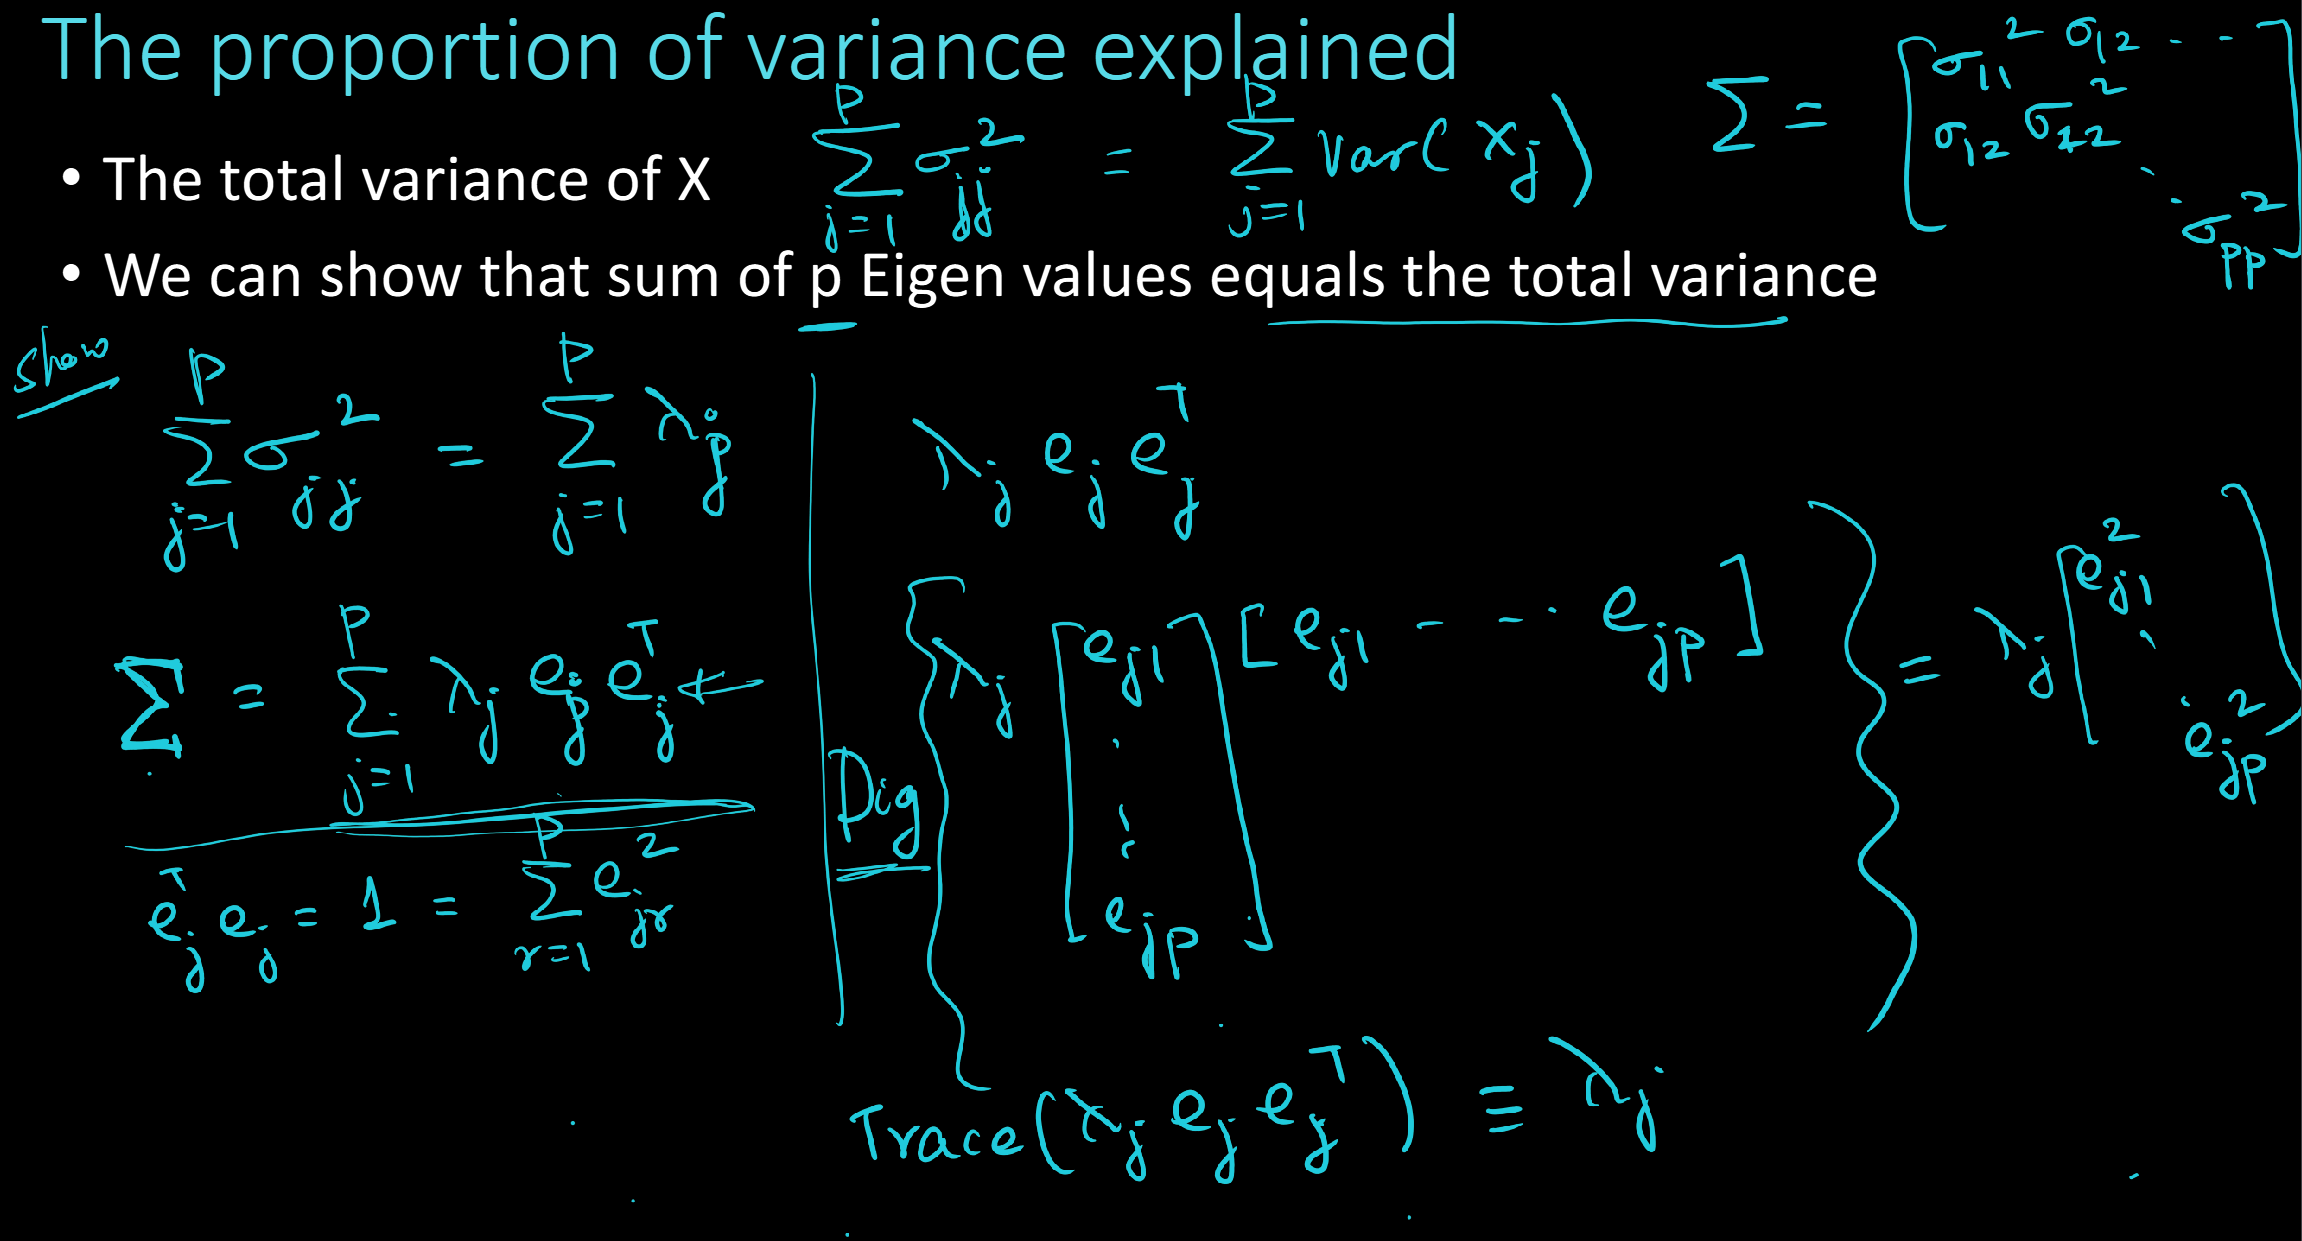 The proportion of variance explained
• The total variance of X
∑_{j=1}^{p} σ_{jj}^2 = ∑_{j=1}^{p} Var(X_j)
∑ = [σ_{11}^2 σ_{12} - -
σ_{12} σ_{22}^2
σ_{pp}^2]
• We can show that sum of p Eigen values equals the total variance
Show
∑_{j=1}^{p} σ_{jj}^2 = ∑_{j=1}^{p} λ_j
∑ = ∑_{j=1}^{p} λ_j e_j e_j^T ←
e_j^T e_j = 1 = ∑_{r=1}^{p} e_{jr}^2
λ_j e_j e_j^T
Dig { λ_j [e_{j1} ⋮ e_{jp}] [e_{j1} - - · e_{jp}] } = λ_j [e_{j1}^2 ⋱ e_{jp}^2]
Trace(λ_j e_j e_j^T) ≡ λ_j